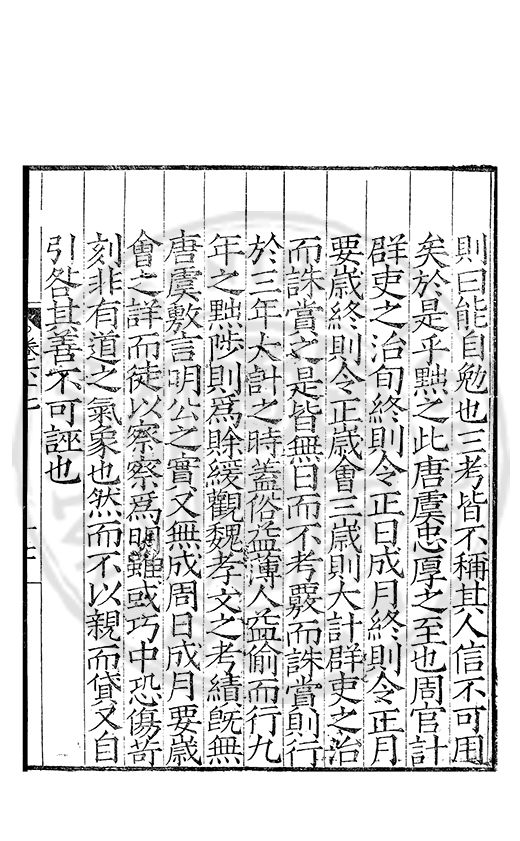 則曰能自勉也三考皆不稱其人信不可用
矣於是乎黜之此唐虞忠厚之至也周官計
群吏之治旬終則令正日成月終則令正月
要歲終則令正歲會三歲則大計群吏之治
而誅賞之是皆無日而不考覈而誅賞則行
於三年大計之時蓋俗益薄人益偷而行九
年之黜陟則為賒緩觀魏孝文之考績既無
唐虞敷言明公之實又無成周日成月要歲
會之詳而徒以察察為明雖或巧中恐傷苛
刻非有道之氣象也然而不以親而貸又自
引咎其善不可誣也